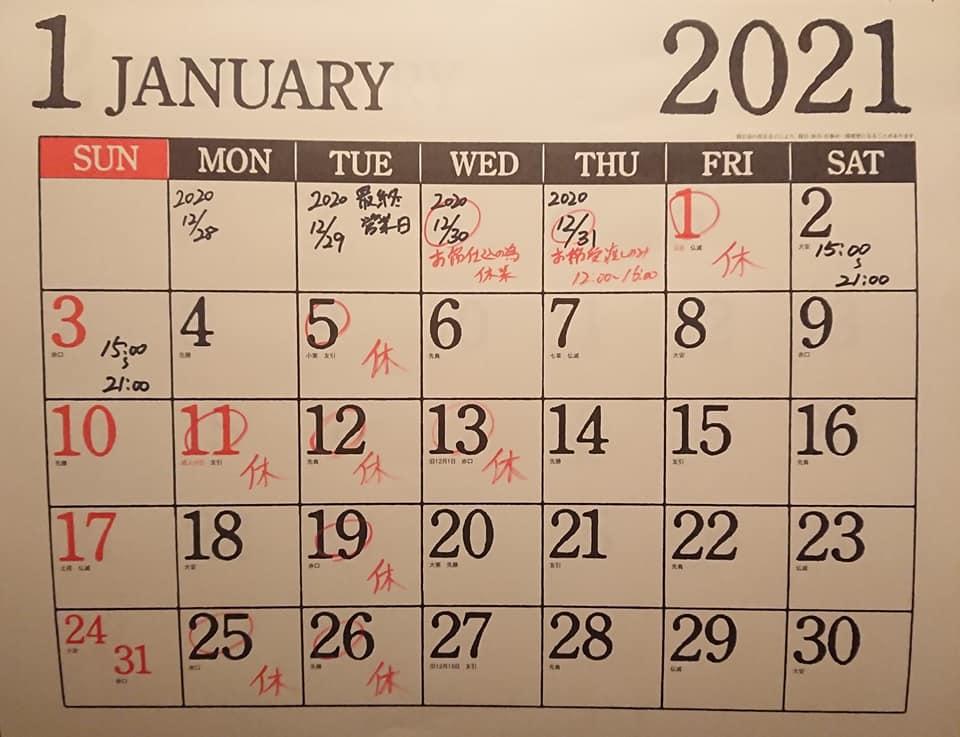 1 JANUARY 2021
SUN MON TUE WED THU FRI SAT
2020
12/28
2020 最終
12/29 営業日
2020
12/30
お節仕込の為
休業
2020
12/31
お節受渡しのみ
12:00~15:00
1
仏滅
休
2
大安
15:00
~
21:00
3
赤口
15:00
~
21:00
4
先勝
5
小寒 友引
休
6
先負
7
七草 仏滅
8
大安
9
赤口
10
先勝
11
成人の日 友引
休
12
先負
休
13
旧12月1日 赤口
休
14
先勝
15
友引
16
先負
17
土用 仏滅
18
大安
19
赤口
休
20
大寒 先勝
21
友引
22
先負
23
仏滅
24
31
赤口
25
赤口
休
26
先勝
休
27
旧12月15日 友引
28
先負
29
仏滅
30
大安